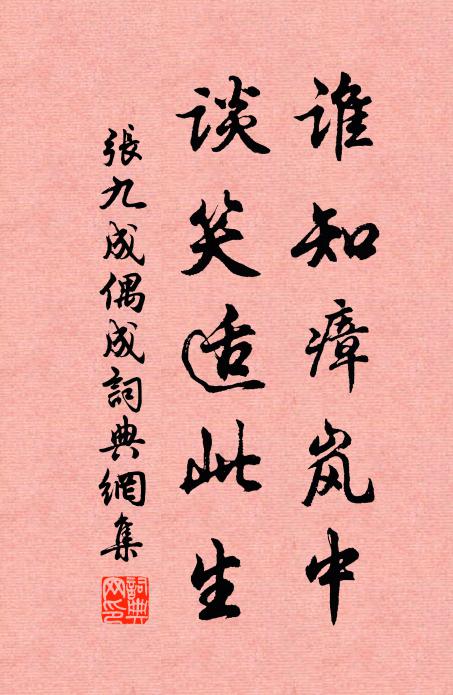 谁知瘴岚中
谈笑适此生
張九成偶成詞典網集
詞典網印